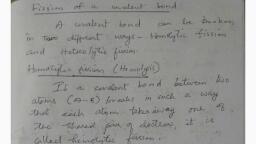 Fission of a covalent bond
A covalent bond can be broken
in two different ways - Homolytic fission
and Heterolytic fission.
Homolytic fission (Homolysis)
If a covalent bond between two
atoms (A-B) breaks in such a way
that each atom takes away one of
the shared pair of electrons, it is
called homolytic fission.